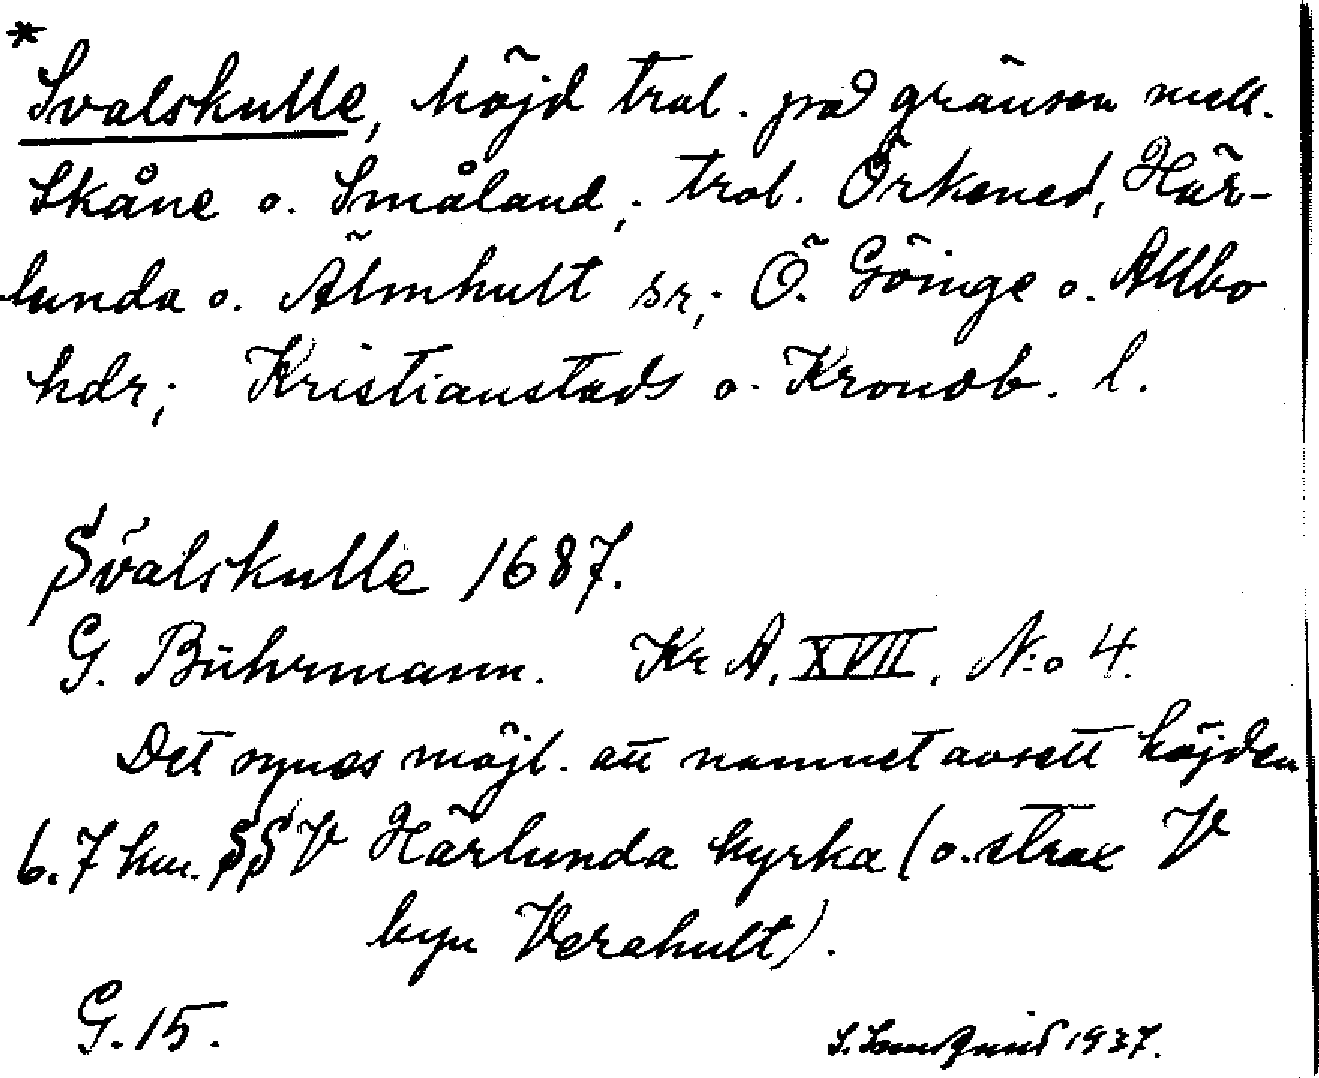 *
Svalskulle, höjd trol. på gränsen mell.
Skåne o. Småland; trol. Örkened, Här-
lunda o. Älmhult sr; Ö. Göinge o. Allbo
hdr; Kristianstads o. Kronob. l.
Svalskulle 1687.
G. Bührmann. Kr A. XVII. N:o 4.
Det synes möjl. att namnet avsett höjden
6.7 km. SSV Härlunda kyrka (o. strax V
byn Verahult).
G. 15.
S. 1937.